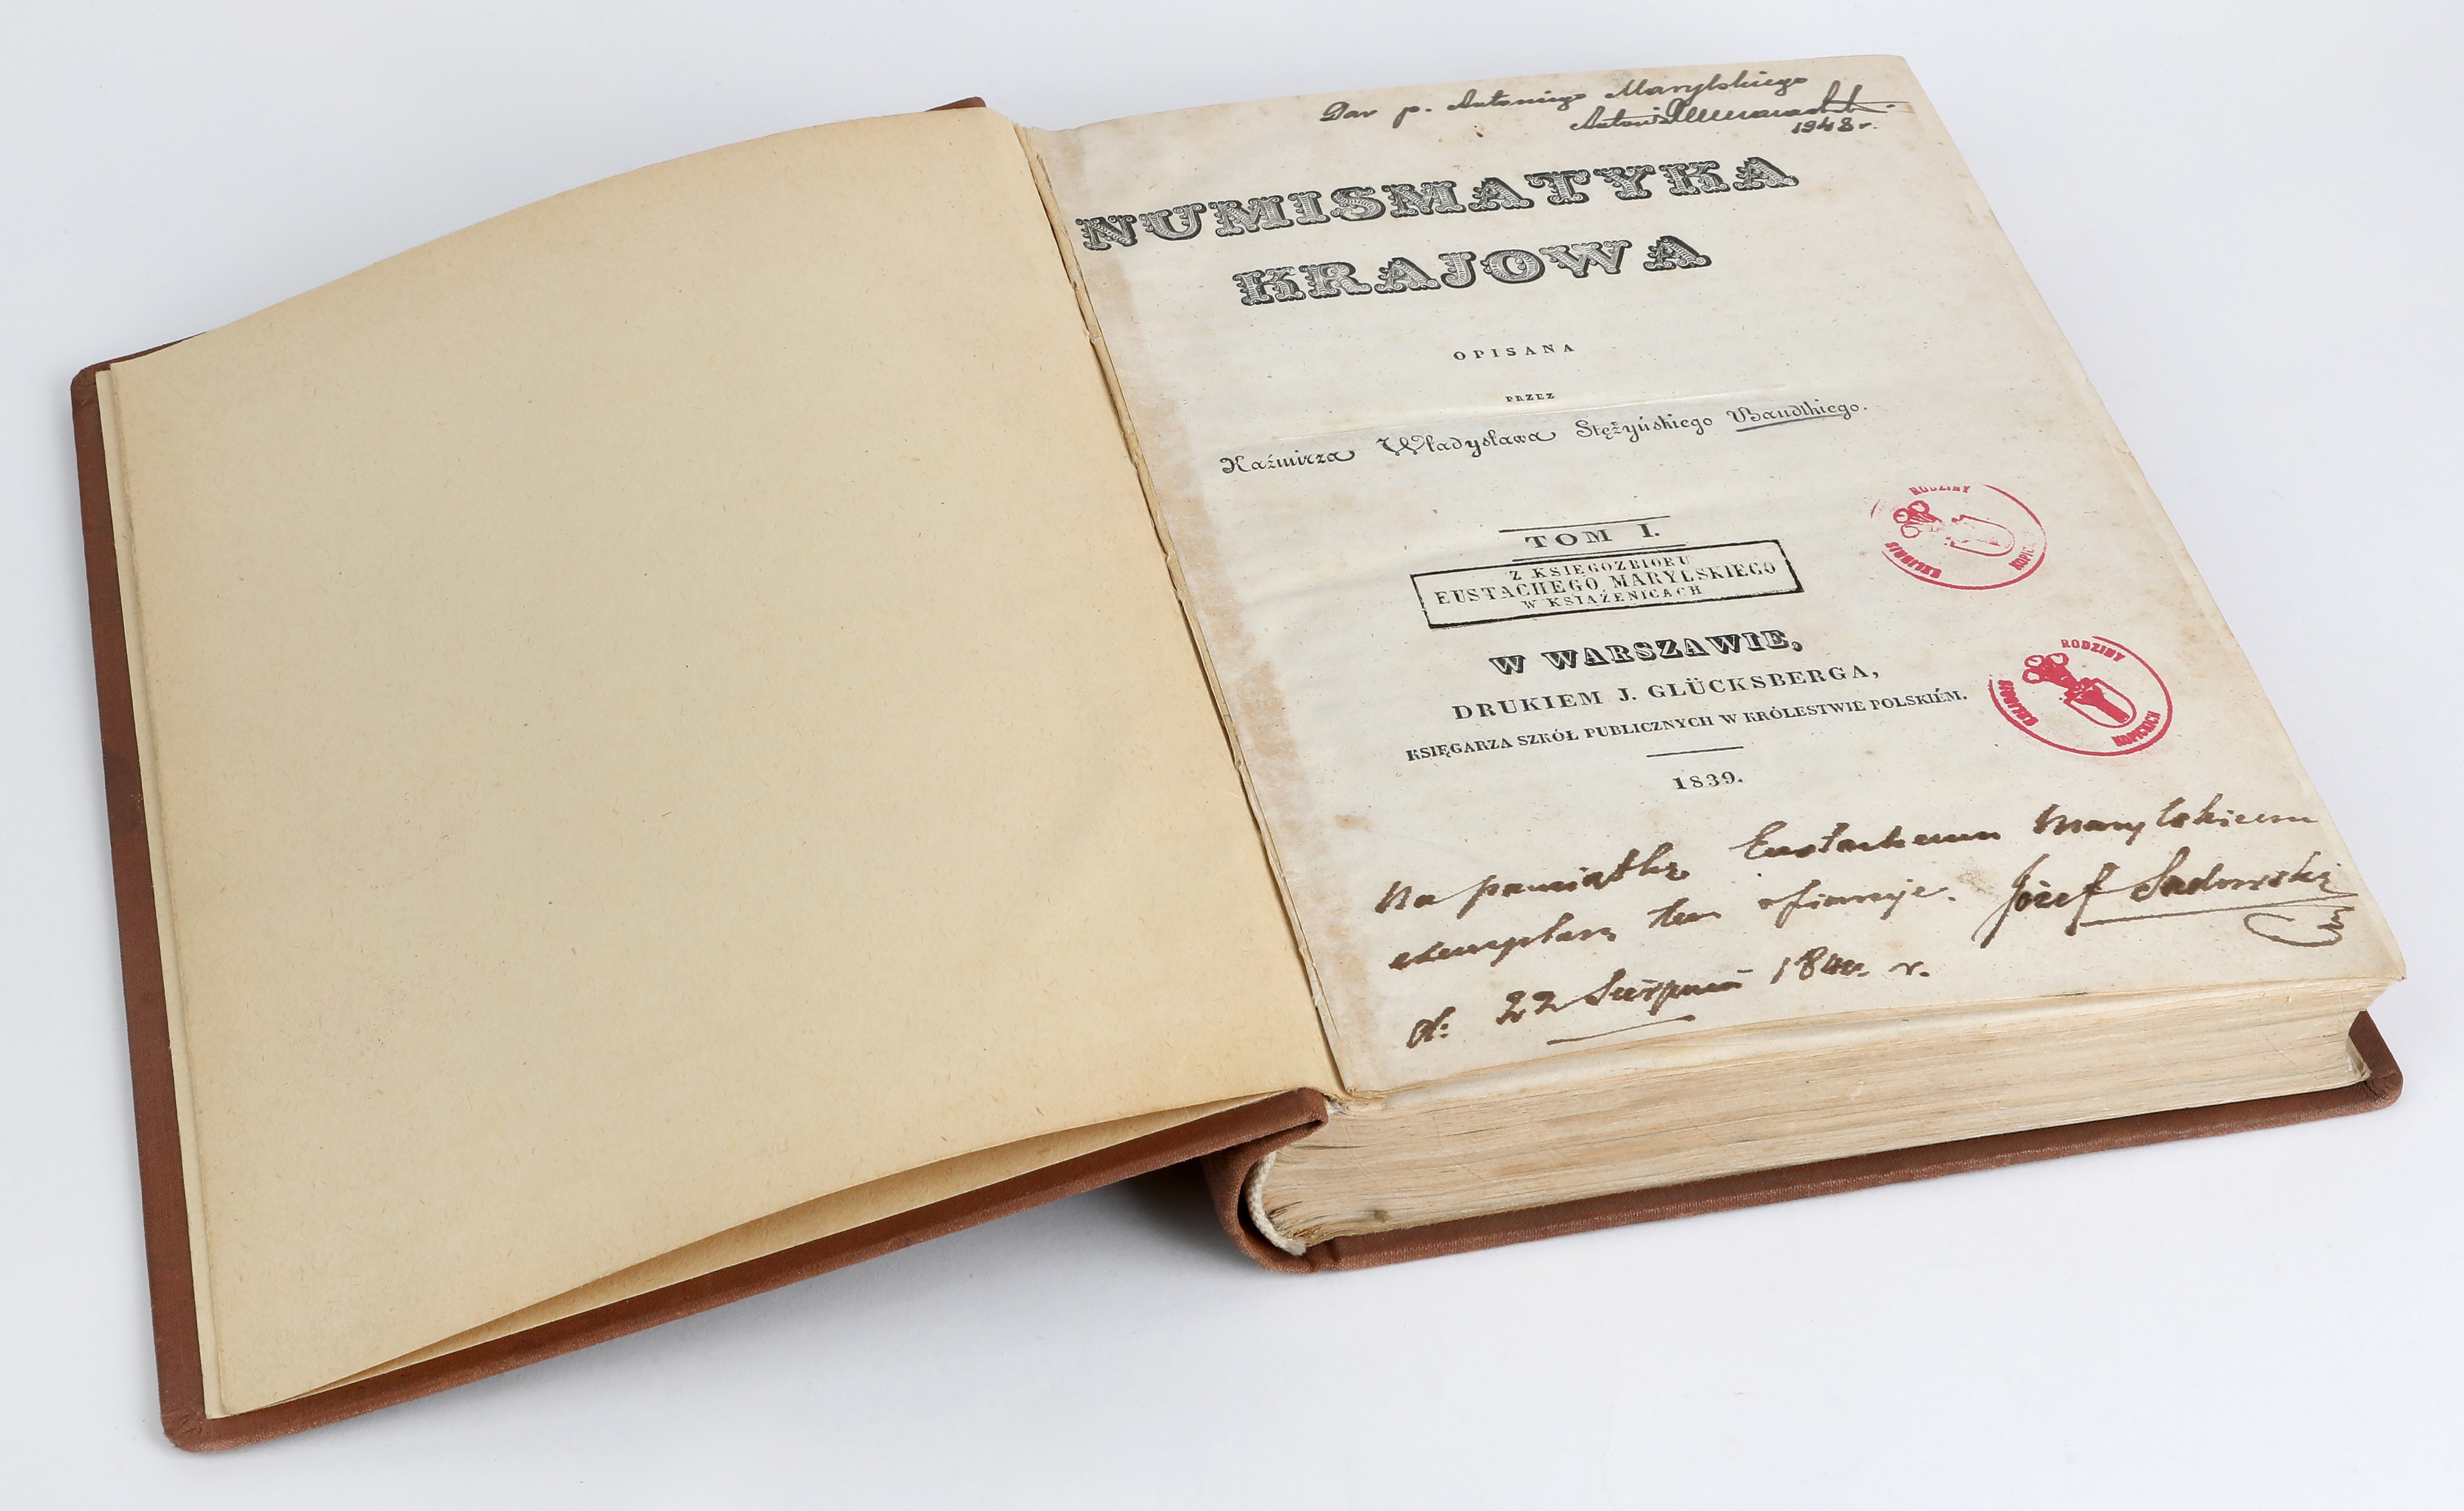 Dar p. Antoniego Marylskiego
1948 r.
NUMISMATYKA
KRAJOWA
OPISANA
PRZEZ
Kaźmirza Władysława Stężyńskiego Bandtkiego.
TOM I.
Z KSIĘGOZBIORU
EUSTACHEGO MARYLSKIEGO
W KSIĄŻENICACH
RODZINY
KOPIC
RODZINY
KOPICKICH
W WARSZAWIE,
DRUKIEM J. GLÜCKSBERGA,
KSIĘGARZA SZKÓŁ PUBLICZNYCH W KRÓLESTWIE POLSKIÉM.
1839.
Na pamiątkę Eustachemu Marylskiemu
exemplarz ten ofiaruje. Józef Sadowski
d: 22 Sierpnia r.